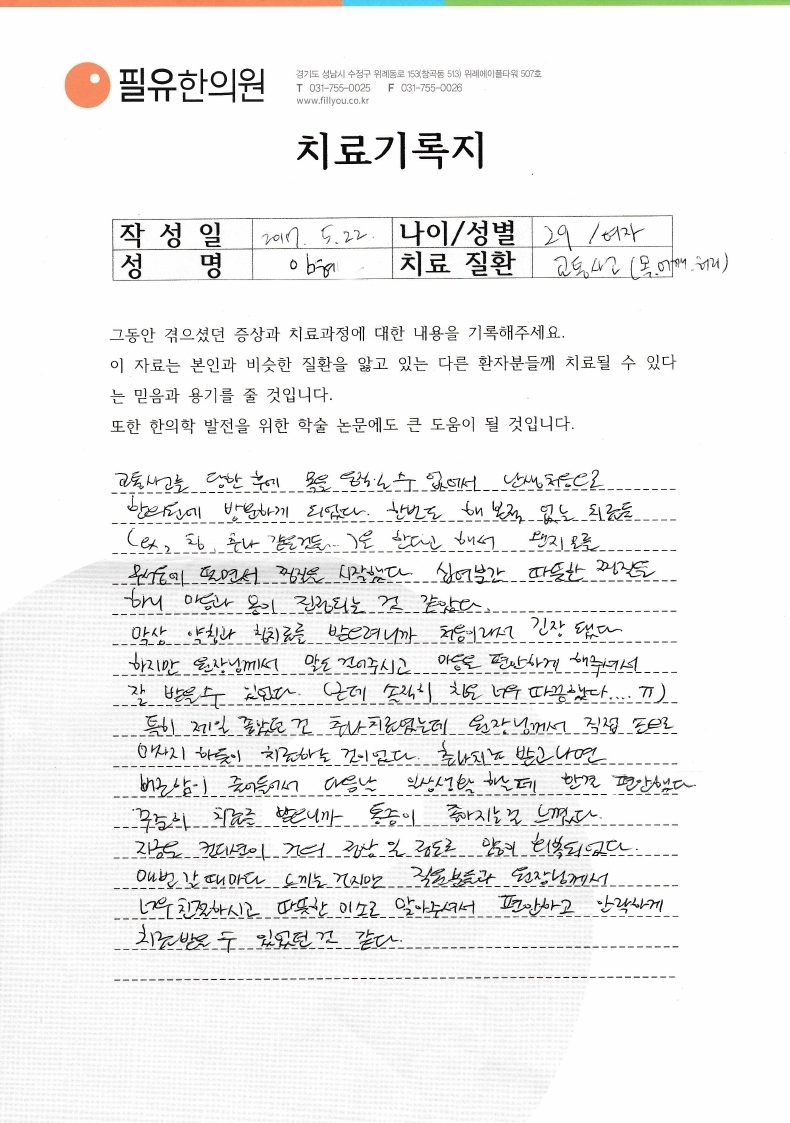 필유한의원
경기도 성남시 수정구 위례동로 153(창곡동 513) 위례에이플타워 507호
T 031-755-0025 F 031-755-0026
www.fillyou.co.kr
치료기록지
작 성 일 2017. 5. 22. 나이/성별 29 /여자
성 명 치료 질환 교통사고 (목.어깨.허리)
그동안 겪으셨던 증상과 치료과정에 대한 내용을 기록해주세요.
이 자료는 본인과 비슷한 질환을 앓고 있는 다른 환자분들께 치료될 수 있다
는 믿음과 용기를 줄 것입니다.
또한 한의학 발전을 위한 학술 논문에도 큰 도움이 될 것입니다.
교통사고를 당한 후에 목을 움직일 수 없어서 난생처음으로
한의원에 방문하게 되었다. 한번도 해 본적 없는 치료들
(ex, 침, 추나 같은것들...)을 한다고 해서 왠지모를
들면서 찜질을 시작했다. 십여분간 따뜻한 찜질을
하니 마음과 몸이 진정되는 것 같았다.
막상 약침과 침치료를 받으려니까 처음이라서 긴장 됐다
하지만 원장님께서 말도 걸어주시고 마음도 편안하게 해주셔서
잘 받을수 있었다. (근데 솔직히 침은 너무 따끔했다.... ㅠ)
특히 제일 좋았던 건 추나치료였는데 원장님께서 직접 손으로
마사지 하듯이 치료하는 것이었다. 추나치료 받고나면
뻐근함이 줄어들어서 다음날 일상생활 하는데 한결 편안했다
꾸준히 치료를 받으니까 통증이 좋아지는걸 느꼈다.
지금은 컨디션이 거의 정상 일 정도로 많이 회복되었다.
매번 갈 때마다 느끼는 거지만 직원분들과 원장님께서
너무 친절하시고 따뜻한 미소로 맞아주셔서 편안하고 안락하게
치료받을 수 있었던 것 같다.